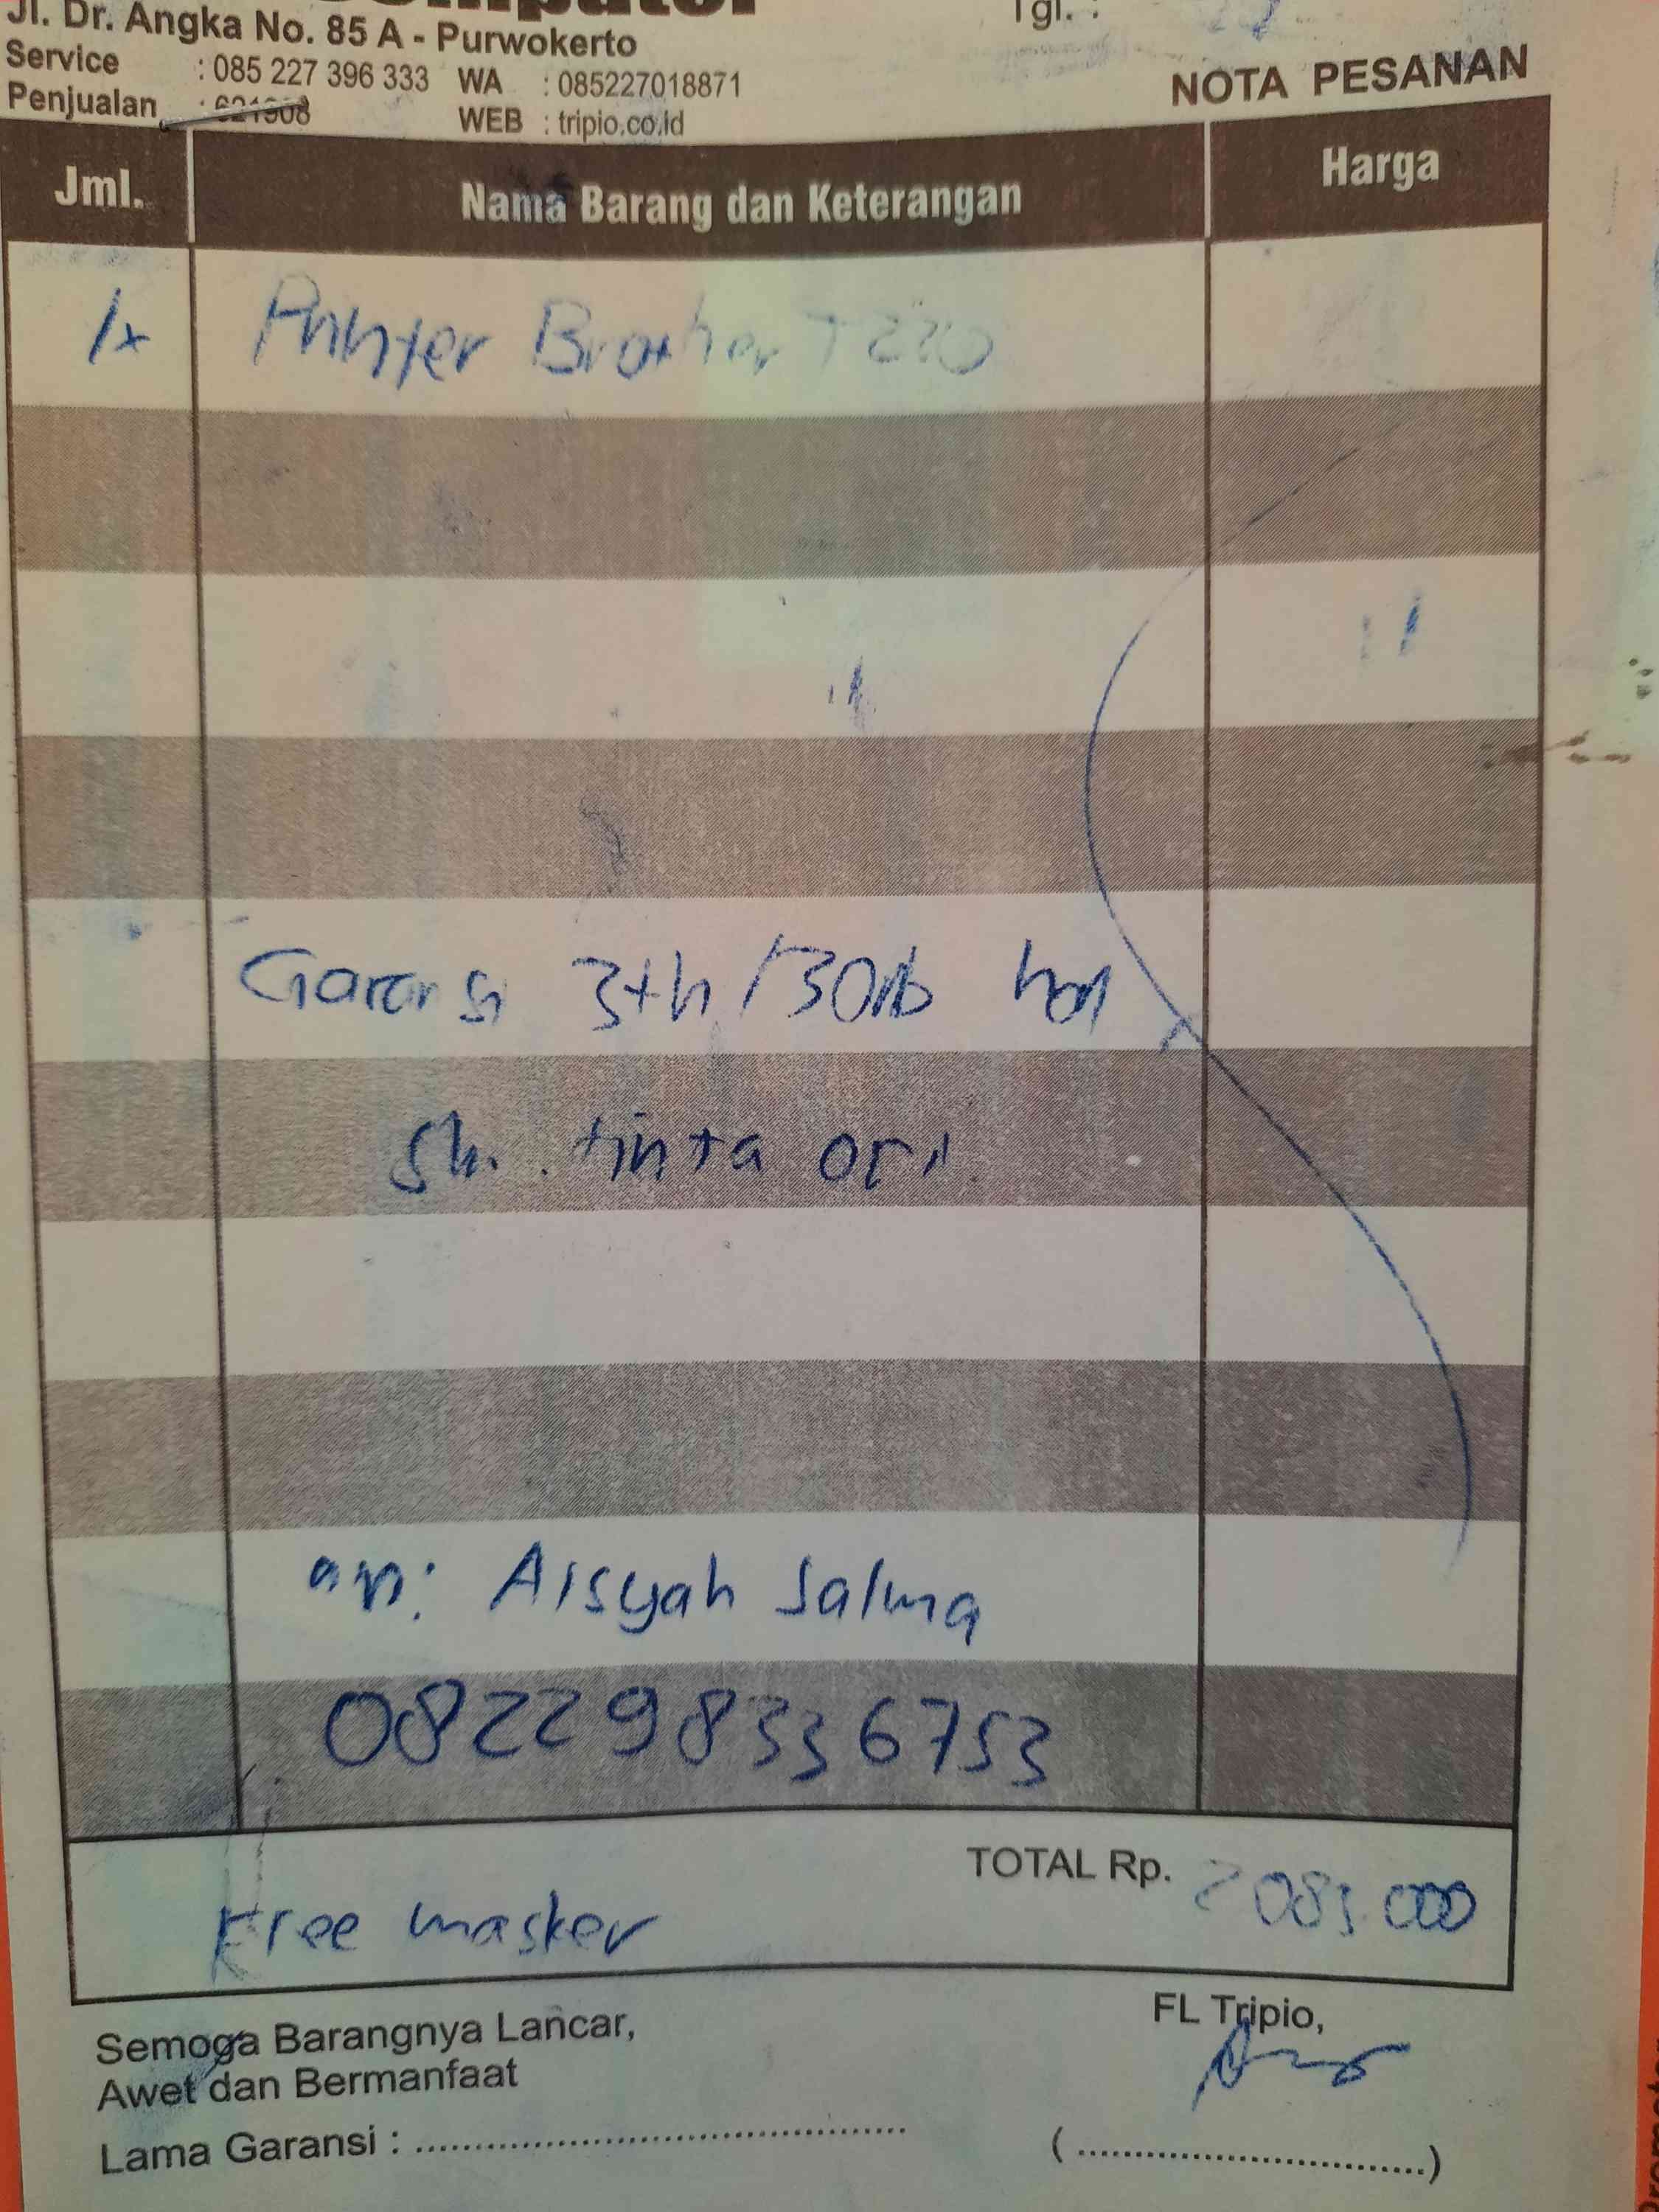 Computer
Jl. Dr. Angka No. 85 A - Purwokerto
Tgl. :
Service : 085 227 396 333 WA : 085227018871
Penjualan : 621908 WEB : tripio.co.id
NOTA PESANAN
Jml. Nama Barang dan Keterangan Harga
1x Printer Brother T220
Garansi 3th/30rb
tinta ori
an: Aisyah Salma
082298336753
TOTAL Rp. 2083.000
Free masker
Semoga Barangnya Lancar,
Awet dan Bermanfaat
FL Tripio,
Lama Garansi : ........................................
(................................)